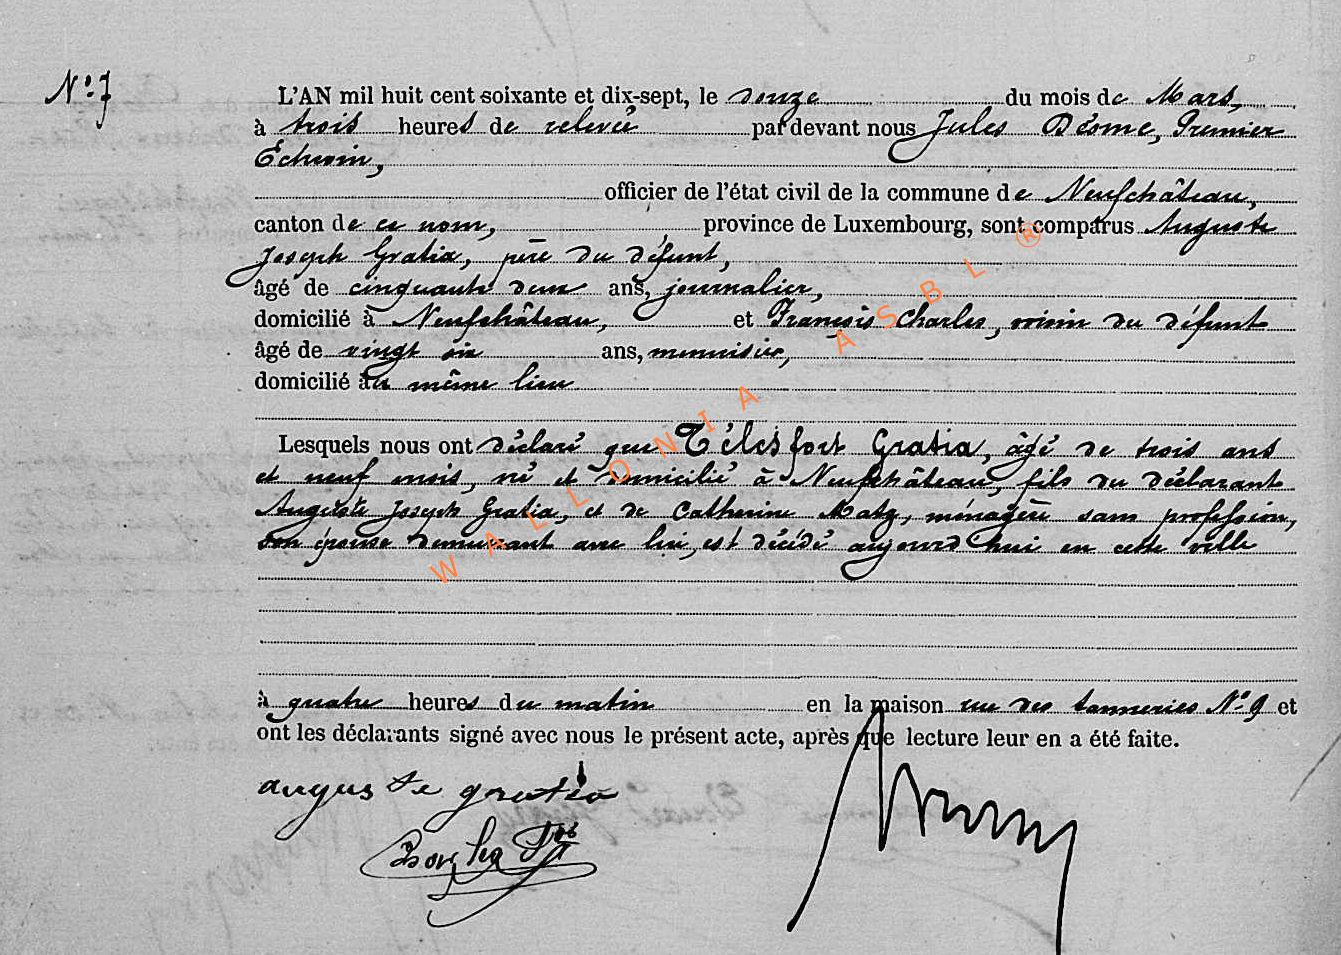 N° 7
L'AN mil huit cent soixante et dix-sept, le douze du mois de Mars,
à trois heures de relevée par devant nous Jules Désme, Premier
Echevin,
officier de l'état civil de la commune de Neufchâteau,
canton de ce nom, province de Luxembourg, sont comparus Auguste
Joseph Gratia, père du défunt,
âgé de cinquante deux ans, journalier,
domicilié à Neufchâteau, et François Charles, voisin du défunt
âgé de vingt six ans, menuisier,
domicilié au même lieu
Lesquels nous ont déclaré que Télesfort Gratia, âgé de trois ans
et neuf mois, né et domicilié à Neufchâteau, fils du déclarant
Auguste Joseph Gratia, et de Catherine Matz, ménagère sans profession,
son épouse demeurant avec lui, est décédé aujourd'hui en cette ville
à quatre heures du matin en la maison rue des tanneries N° 9 et
ont les déclarants signé avec nous le présent acte, après que lecture leur en a été faite.
auguste gratia
WALLONIA ASBL ®